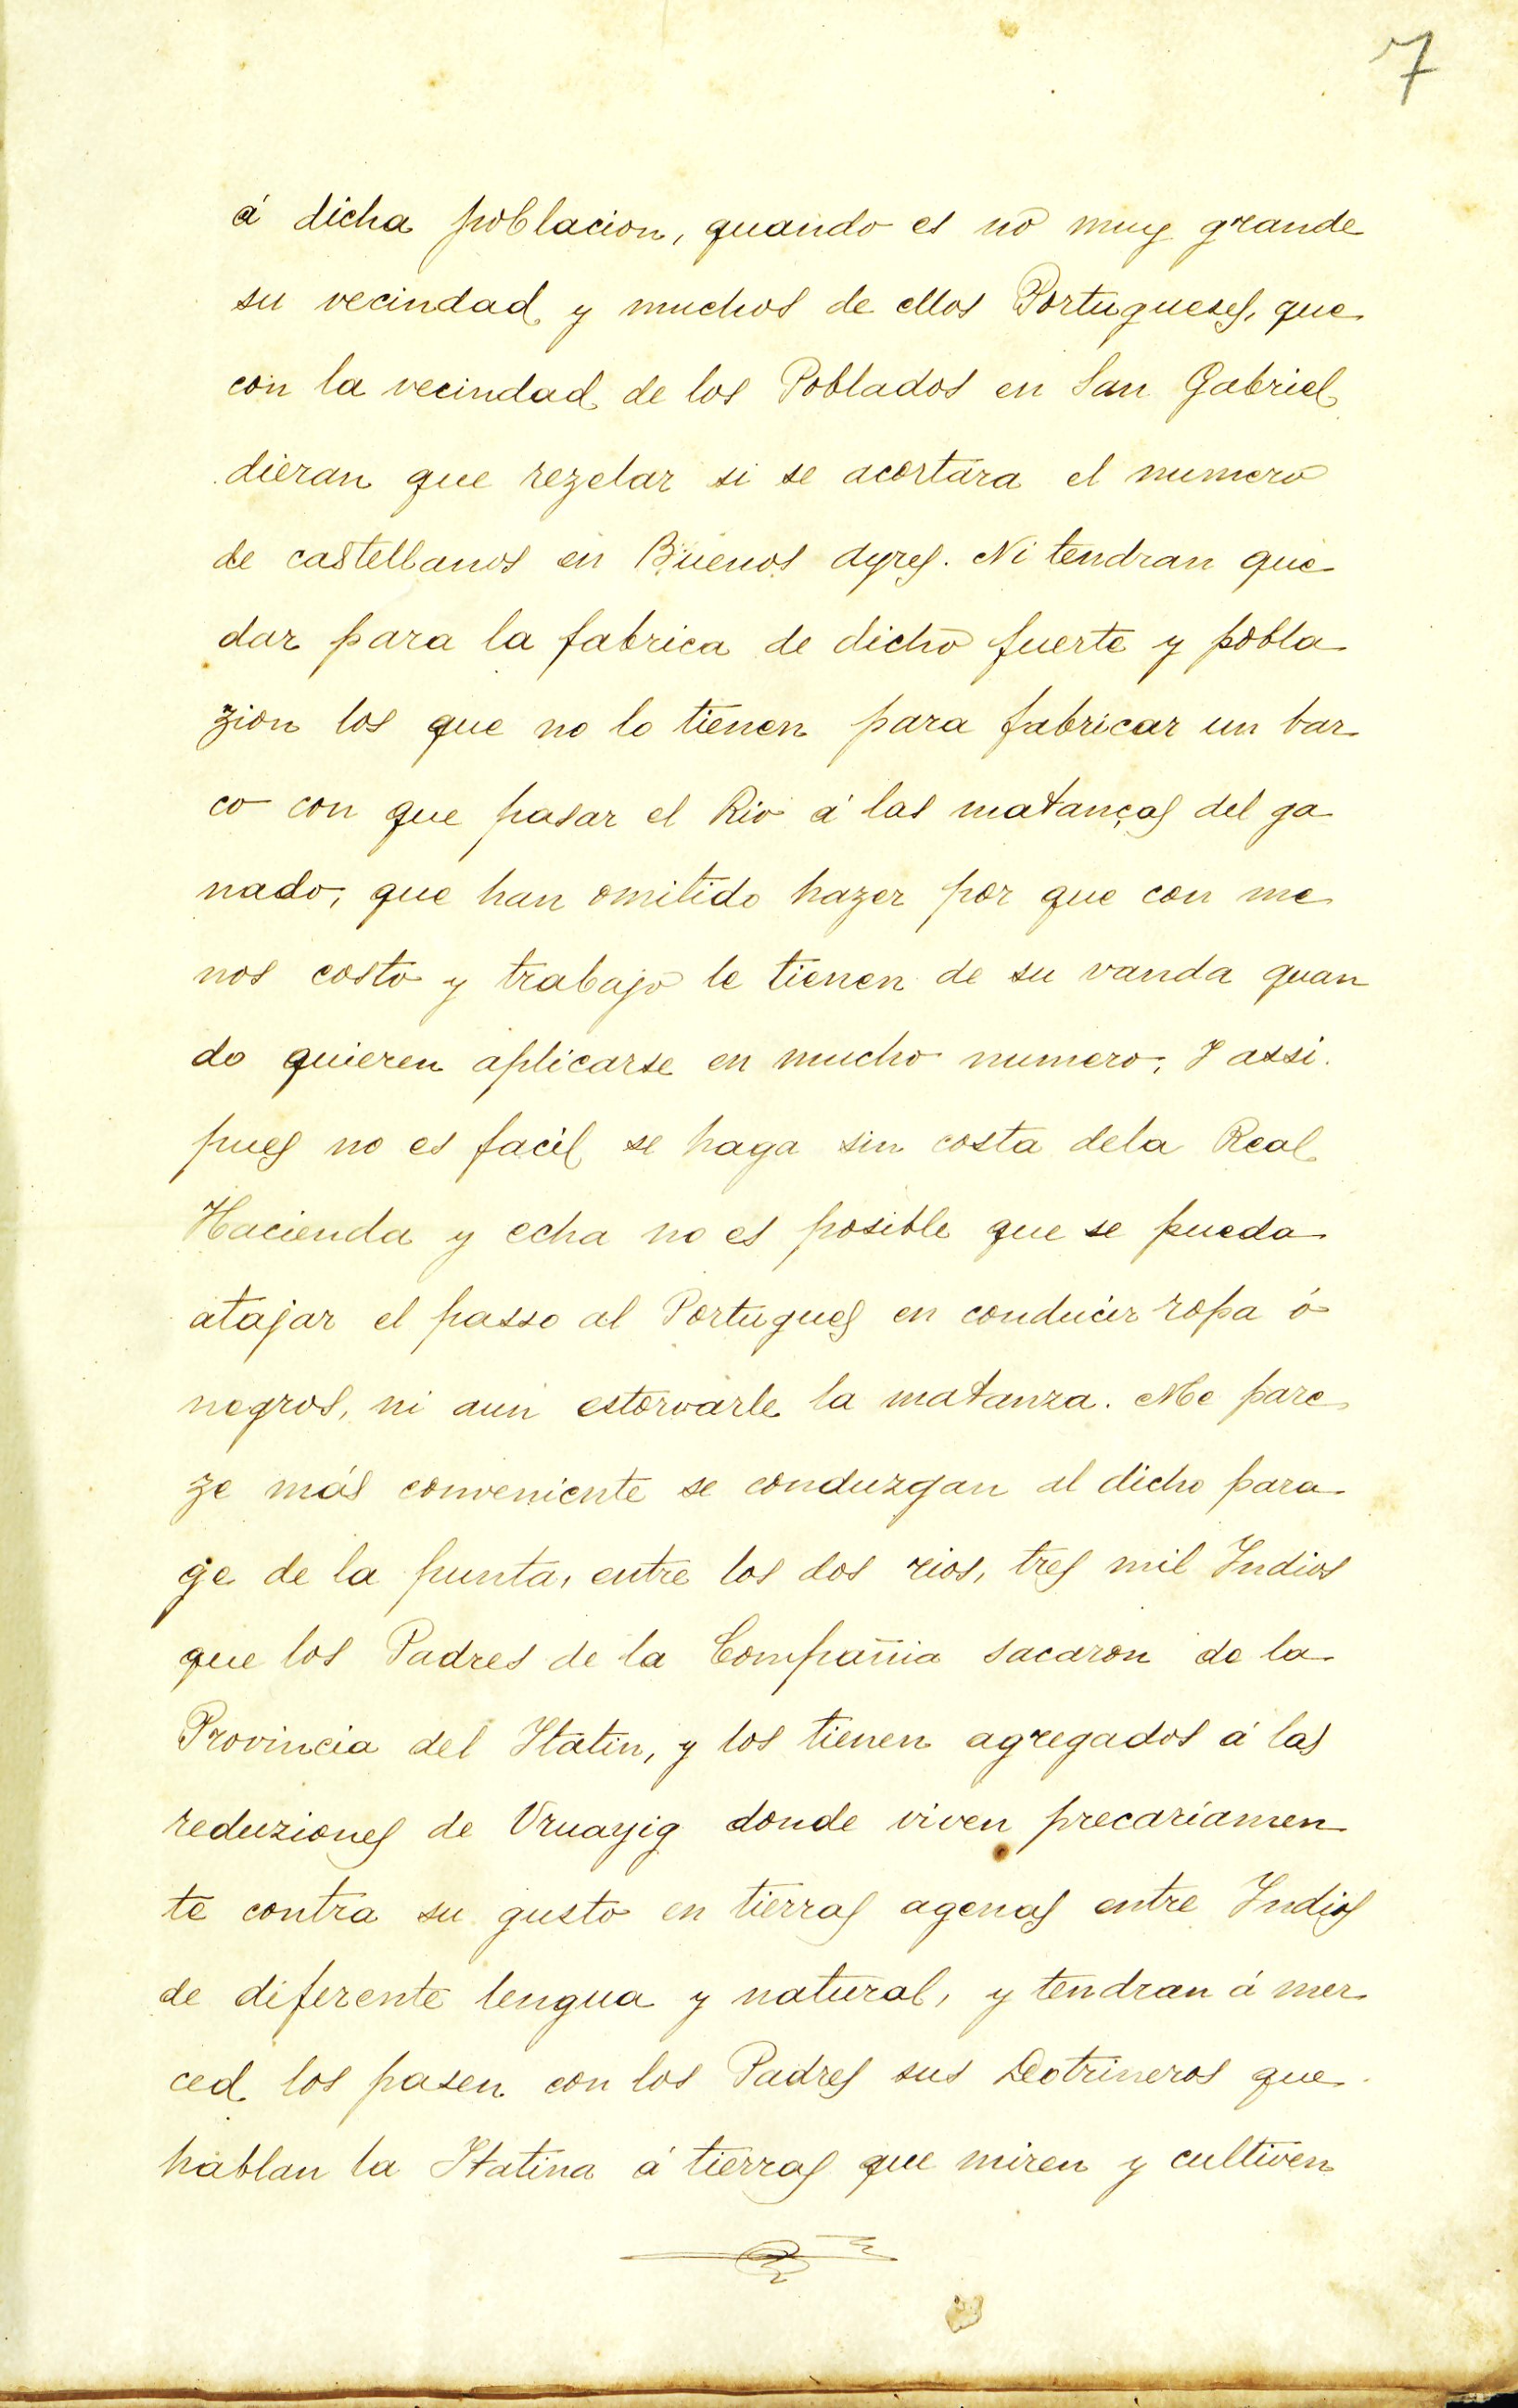 7
á dicha poblacion, quando es no muy grande
su vecindad y muchos de ellos Portugueses, que
con la vecindad de los Poblados en San Gabriel
dieran que rezelar si se acortára el numero
de castellanos en Buenos Ayres. Ni tendran que
dar para la fabrica de dicho fuerte y pobla
zion los que no lo tienen para fabricar un bar
co con que pasar el Rio á las matanças del ga
nado, que han omitido hazer por que con me
nos costo y trabajo le tienen de su vanda quan
do quieren aplicarse en mucho numero, I assi
pues no es facil se haga sin costa dela Real
Hacienda y echa no es posible que se pueda
atajar el passo al Portugues en conducir ropa ó
negros, ni aun estorvarle la matanza. Me pare
ze más conveniente se conduzgan al dicho para
ge de la punta, entre los dos rios, tres mil Indios
que los Padres de la Compañia sacaron de la
Provincia del Itatin, y los tienen agregados á las
reduziones de Uruayig donde viven precariamen
te contra su gusto en tierras agenas entre Indios
de diferente lengua y natural, y tendran á mer
ced los pasen con los Padres sus Dotrineros que
hablan la Itatina á tierras que miren y cultiven